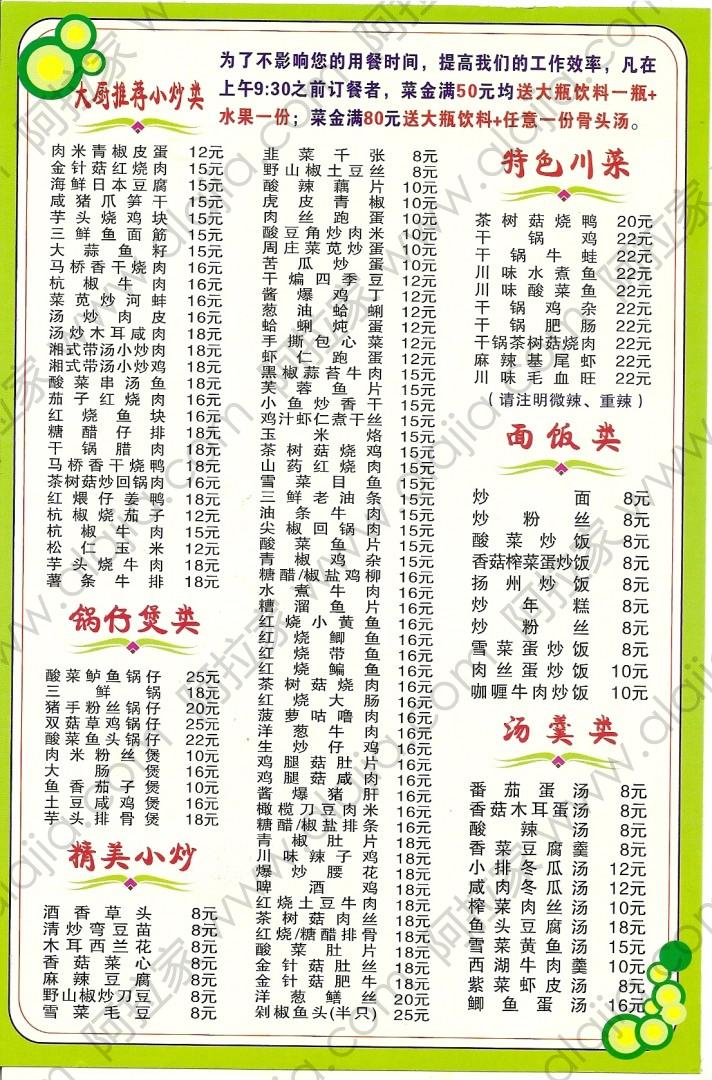 为了不影响您的用餐时间，提高我们的工作效率，凡在
上午9:30之前订餐者，菜金满50元均送大瓶饮料一瓶+
水果一份；菜金满80元送大瓶饮料+任意一份骨头汤。
大厨推荐小炒类
肉米青椒皮蛋 12元
金针菇红烧肉 15元
海鲜日本豆腐 15元
咸猪爪笋干 15元
芋头烧鸡块 15元
三鲜鱼面筋 15元
大蒜鱼籽 15元
马桥香干烧肉 16元
杭椒牛肉 16元
菜苋炒河蚌 16元
汤炒肉皮 16元
汤炒木耳咸肉 18元
湘式带汤小炒肉 18元
湘式带汤小炒鸡 18元
酸菜串汤鱼 18元
茄子红烧肉 18元
红烧鱼块 18元
糖醋仔排 18元
干锅腊肉 18元
马桥香干烧鸭 18元
茶树菇炒回锅肉 18元
红煨仔姜鸭 18元
杭椒烧茄子 12元
杭椒牛肉 15元
松仁玉米 12元
芋头烧牛肉 18元
薯条牛排 18元
锅仔煲类
酸菜鲈鱼锅仔 25元
三鲜锅 18元
猪手粉丝锅仔 20元
双菇草鸡锅仔 25元
酸菜鱼头锅仔 22元
肉米粉丝煲 10元
大肠煲 16元
鱼香茄子煲 10元
土豆咸鸡煲 16元
芋头排骨煲 18元
精美小炒
酒香草头 8元
清炒弯豆苗 8元
木耳西兰花 8元
香菇菜心 8元
麻辣豆腐 8元
野山椒炒刀豆 8元
雪菜毛豆 8元
韭菜千张 8元
野山椒土豆丝 8元
酸辣藕片 10元
虎皮青椒 10元
肉丝跑蛋 10元
酸豆角炒肉米 10元
周庄菜苋炒蛋 10元
苦瓜炒蛋 10元
干煸四季豆 12元
酱爆鸡丁 12元
葱油蛤蜊 12元
蛤蜊炖蛋 12元
手撕包心菜 12元
虾仁跑蛋 12元
黑椒蒜苔牛肉 15元
芙蓉鱼片 15元
小鱼炒香干 15元
鸡汁虾仁煮干丝 15元
玉米烙 15元
茶树菇烧鸡 15元
山药红烧肉 15元
雪菜目鱼 15元
三鲜老油条 15元
油条牛肉 15元
尖椒回锅肉 15元
酸菜鱼片 15元
青椒鸡杂 15元
糖醋/椒盐鸡柳 16元
水煮牛肉 16元
糟溜鱼片 16元
红烧小黄鱼 16元
红烧鲫鱼 16元
红烧带鱼 16元
红烧鳊鱼 16元
茶树菇烧肉 16元
红烧大肠 16元
菠萝咕噜肉 16元
洋葱牛肉 16元
生炒仔鸡 16元
鸡腿菇肚片 16元
鸡腿菇咸肉 16元
酱爆猪肝 16元
橄榄刀豆肉米 16元
糖醋/椒盐排条 16元
青椒肚片 18元
川味辣子鸡 18元
爆炒腰花 18元
啤酒鸡 18元
红烧土豆牛肉 18元
茶树菇肉丝 18元
红烧/糖醋排骨 18元
酸菜肚片 18元
金针菇肚丝 18元
金针菇肥牛 18元
洋葱鳝丝 20元
剁椒鱼头(半只) 25元
特色川菜
茶树菇烧鸭 20元
干锅鸡 22元
干锅牛蛙 22元
川味水煮鱼 22元
川味酸菜鱼 22元
干锅鸡杂 22元
干锅肥肠 22元
干锅茶树菇烧肉 22元
麻辣基尾虾 22元
川味毛血旺 22元
(请注明微辣、重辣)
面饭类
炒面 8元
炒粉丝 8元
酸菜炒饭 8元
香菇榨菜蛋炒饭 8元
扬州炒饭 8元
炒年糕 8元
炒粉丝 8元
雪菜蛋炒饭 8元
肉丝蛋炒饭 10元
咖喱牛肉炒饭 10元
汤羹类
番茄蛋汤 8元
香菇木耳蛋汤 8元
酸辣汤 8元
香菜豆腐羹 8元
小排冬瓜汤 12元
咸肉冬瓜汤 12元
榨菜肉丝汤 10元
鱼头豆腐汤 18元
雪菜黄鱼汤 15元
西湖牛肉羹 10元
紫菜虾皮汤 8元
鲫鱼蛋汤 16元
阿拉家 www.alajia.com